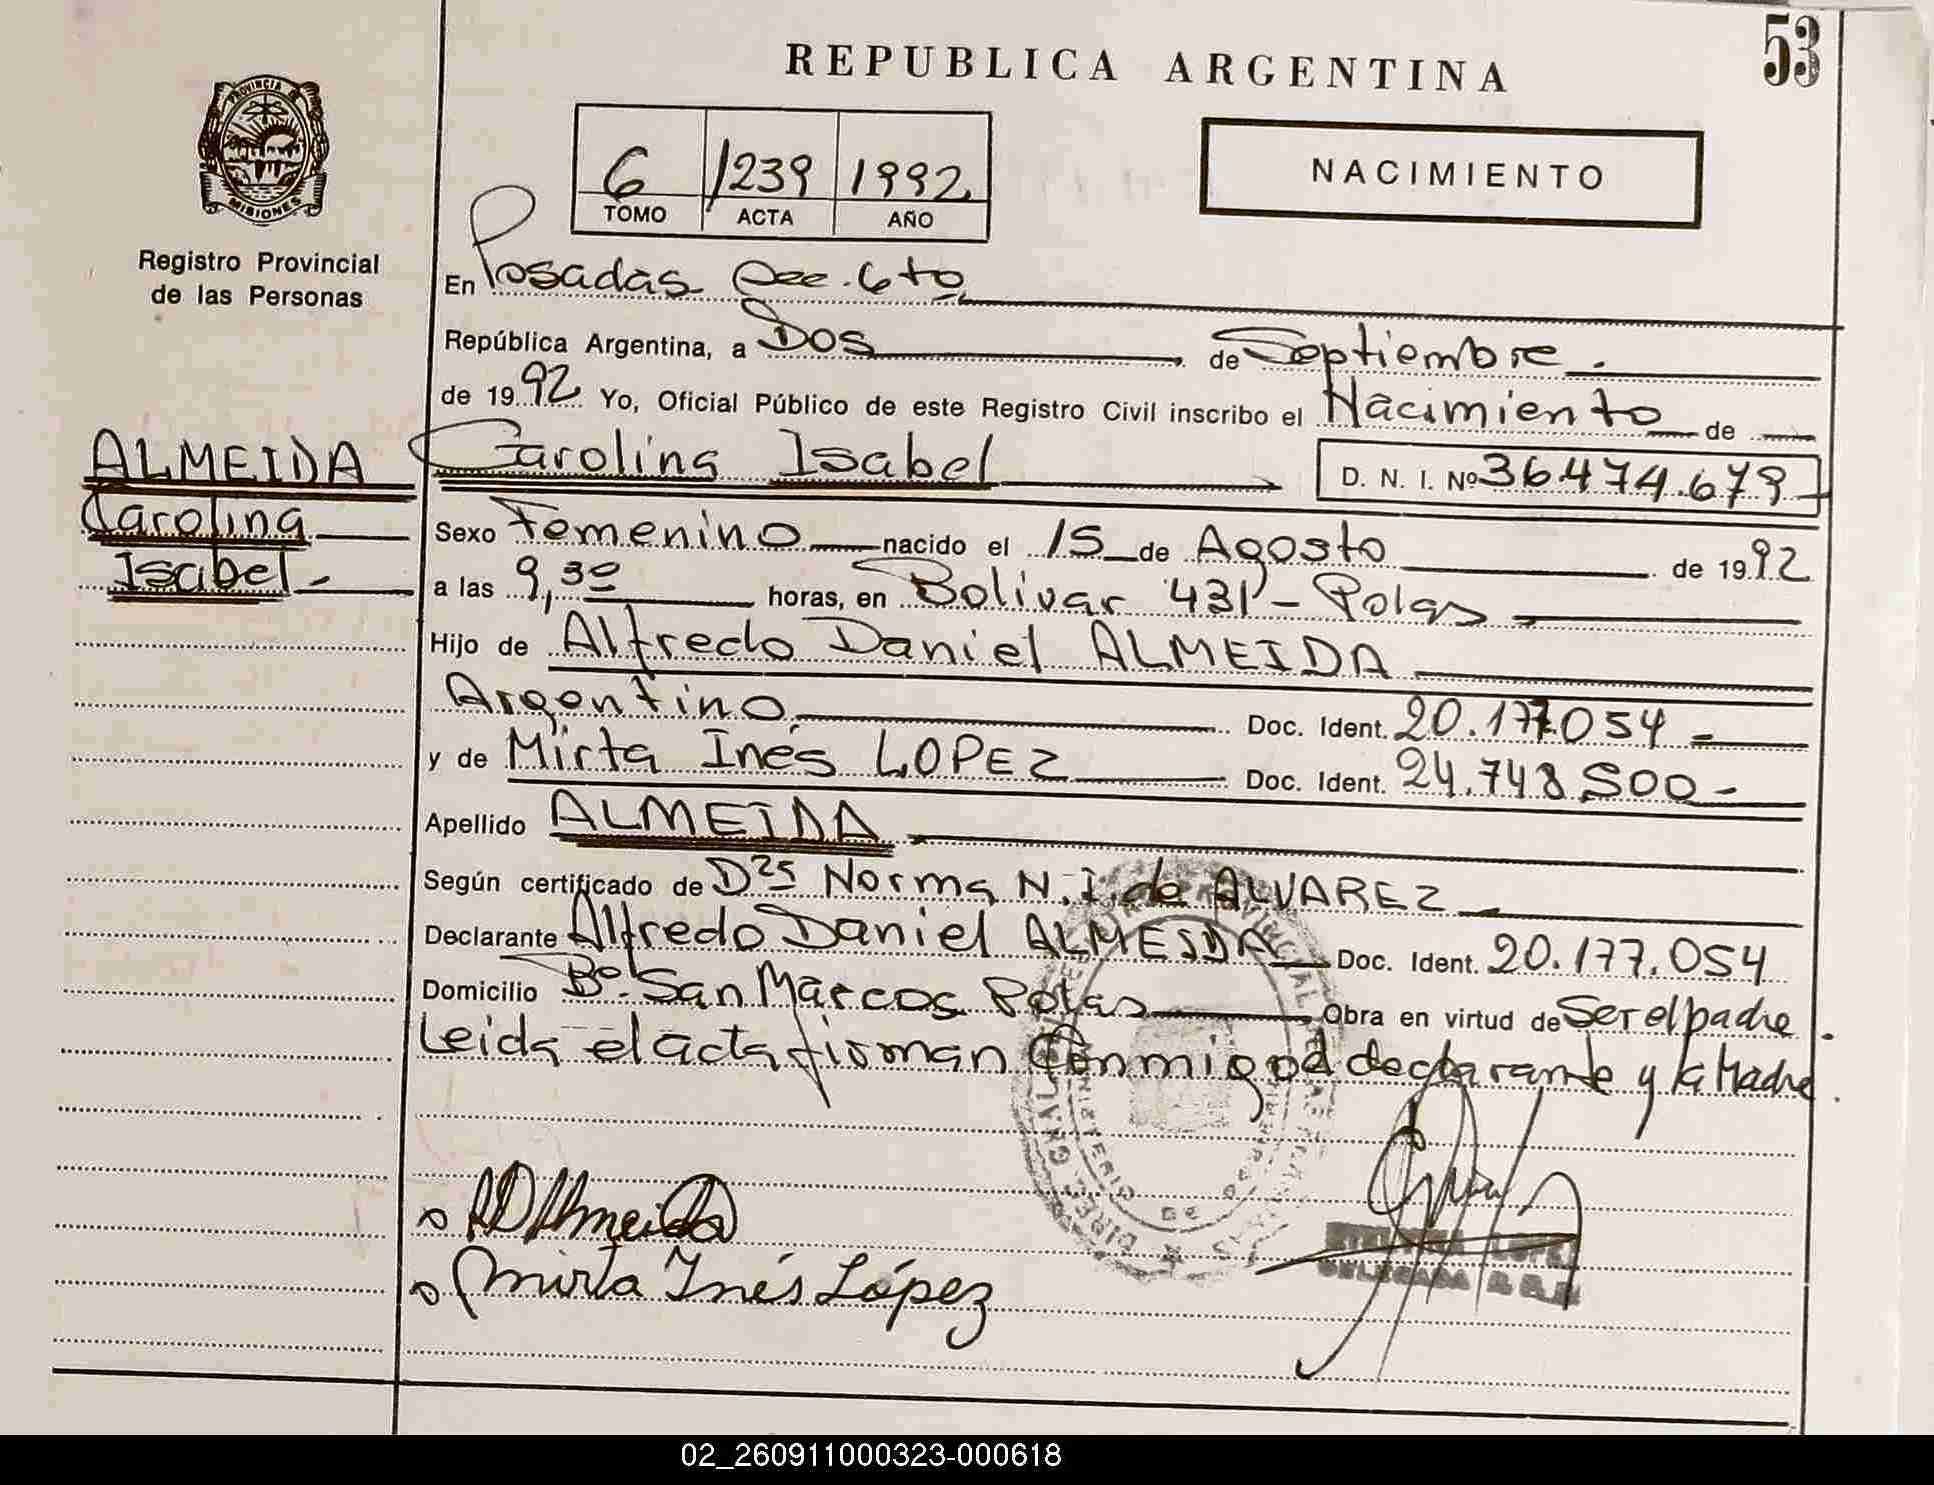 53
REPUBLICA ARGENTINA
NACIMIENTO
6 1239 1992
TOMO ACTA AÑO
PROVINCIA DE
MISIONES
Registro Provincial
de las Personas
ALMEIDA
Carolina
Isabel
En Posadas Sec. 6to
República Argentina, a Dos de Septiembre.
de 1992 Yo, Oficial Público de este Registro Civil inscribo el Nacimiento de
Carolina Isabel D. N. I. Nº 36.474.679
Sexo Femenino nacido el 15 de Agosto de 1992
a las 9,30 horas, en Bolivar 431 - Pdas
Hijo de Alfredo Daniel ALMEIDA
Argentino Doc. Ident. 20.177.054
y de Mirta Inés LOPEZ Doc. Ident. 24.748.500
Apellido ALMEIDA
Según certificado de Norma N. I. de ALVAREZ
Declarante Alfredo Daniel ALMEIDA Doc. Ident. 20.177.054
Domicilio Bº. San Marcos Pdas Obra en virtud de Ser el padre.
Leida el acta firman Conmigo el declarante y la Madre.
AD Almeida
Mirta Inés López
LOPEZ
DELEGADA
02_260911000323-000618